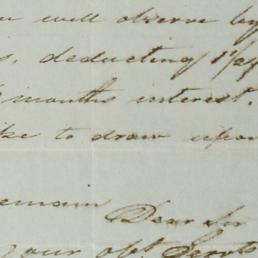 will observe by
deducting
months interest.
to draw upon
remain
Dear Sir
your obt Servt